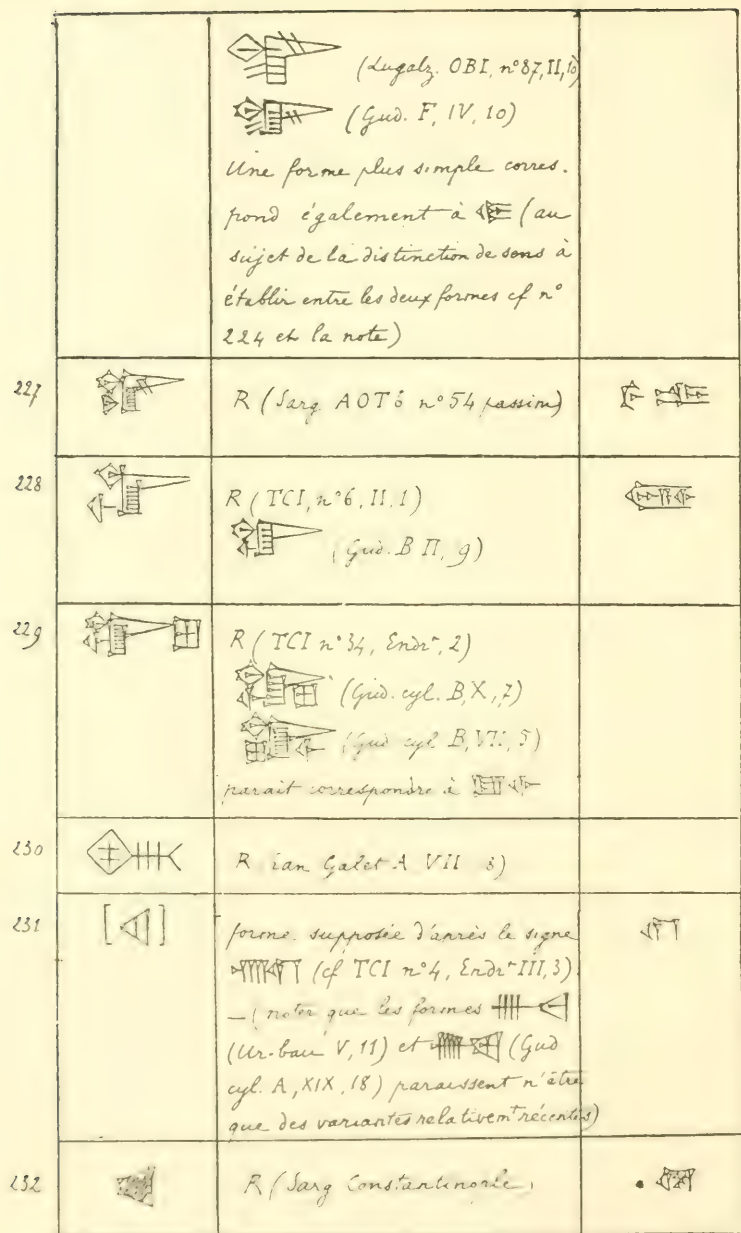 (Lugalz. OBI, n°87, II, 10)
(Gud. F, IV, 10)
Une forme plus simple corres-
pond également à (au
sujet de la distinction de sens à
établir entre les deux formes cf n°
224 et la note)
227 R (Sarg. AOTb n°54 passim)
228 R (TCI, n°6, II, 1)
(Gud. B II, 9)
229 R (TCI n°34, Endrt, 2)
(Gud. cyl. B, X, 7)
(Gud cyl B, VII, 5)
parait correspondre à
230 R Galet A VII
231 forme supposée d'après le signe
(cf TCI n°4, Endrt III, 3)
— (noter que les formes
(Ur-bau V, 11) et (Gud
cyl. A, XIX, 18) paraissent n'être
que des variantes relativemt récentes)
232 R (Sarg Constantinople